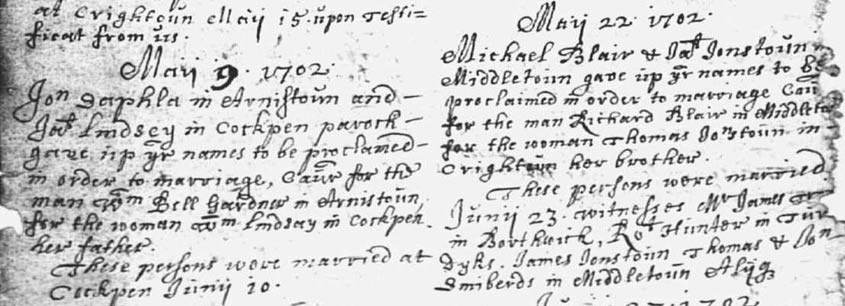 at Crightoun Maij 15. upon Testi=
ficat from us.
Maij 9. 1702.
Jon Daphla in Arnistoun and -
Jat Lindsey in Cockpen paroch -
gave up yr names to be proclamed -
in order to marriage, Caur for the
man Wm Bell Gardner in Arnistoun,
for the woman Wm Lindsay in Cockpen
her father.
These persons were married at
Cockpen Junij 10.
Maij 22. 1702.
Michael Blair & Jat Jonstoun
Middletoun gave up yr names to be
proclaimed in order to marriage Cau
for the man Richard Blair in Middleto
for the woman Thomas Jonstoun in
Crightoun her brother.
These persons were married
Junij 23. witnesses Mr James
in Borthwick, Rot Hunter in
dyks. James Jonstoun Thomas & Jon
in Middletoun